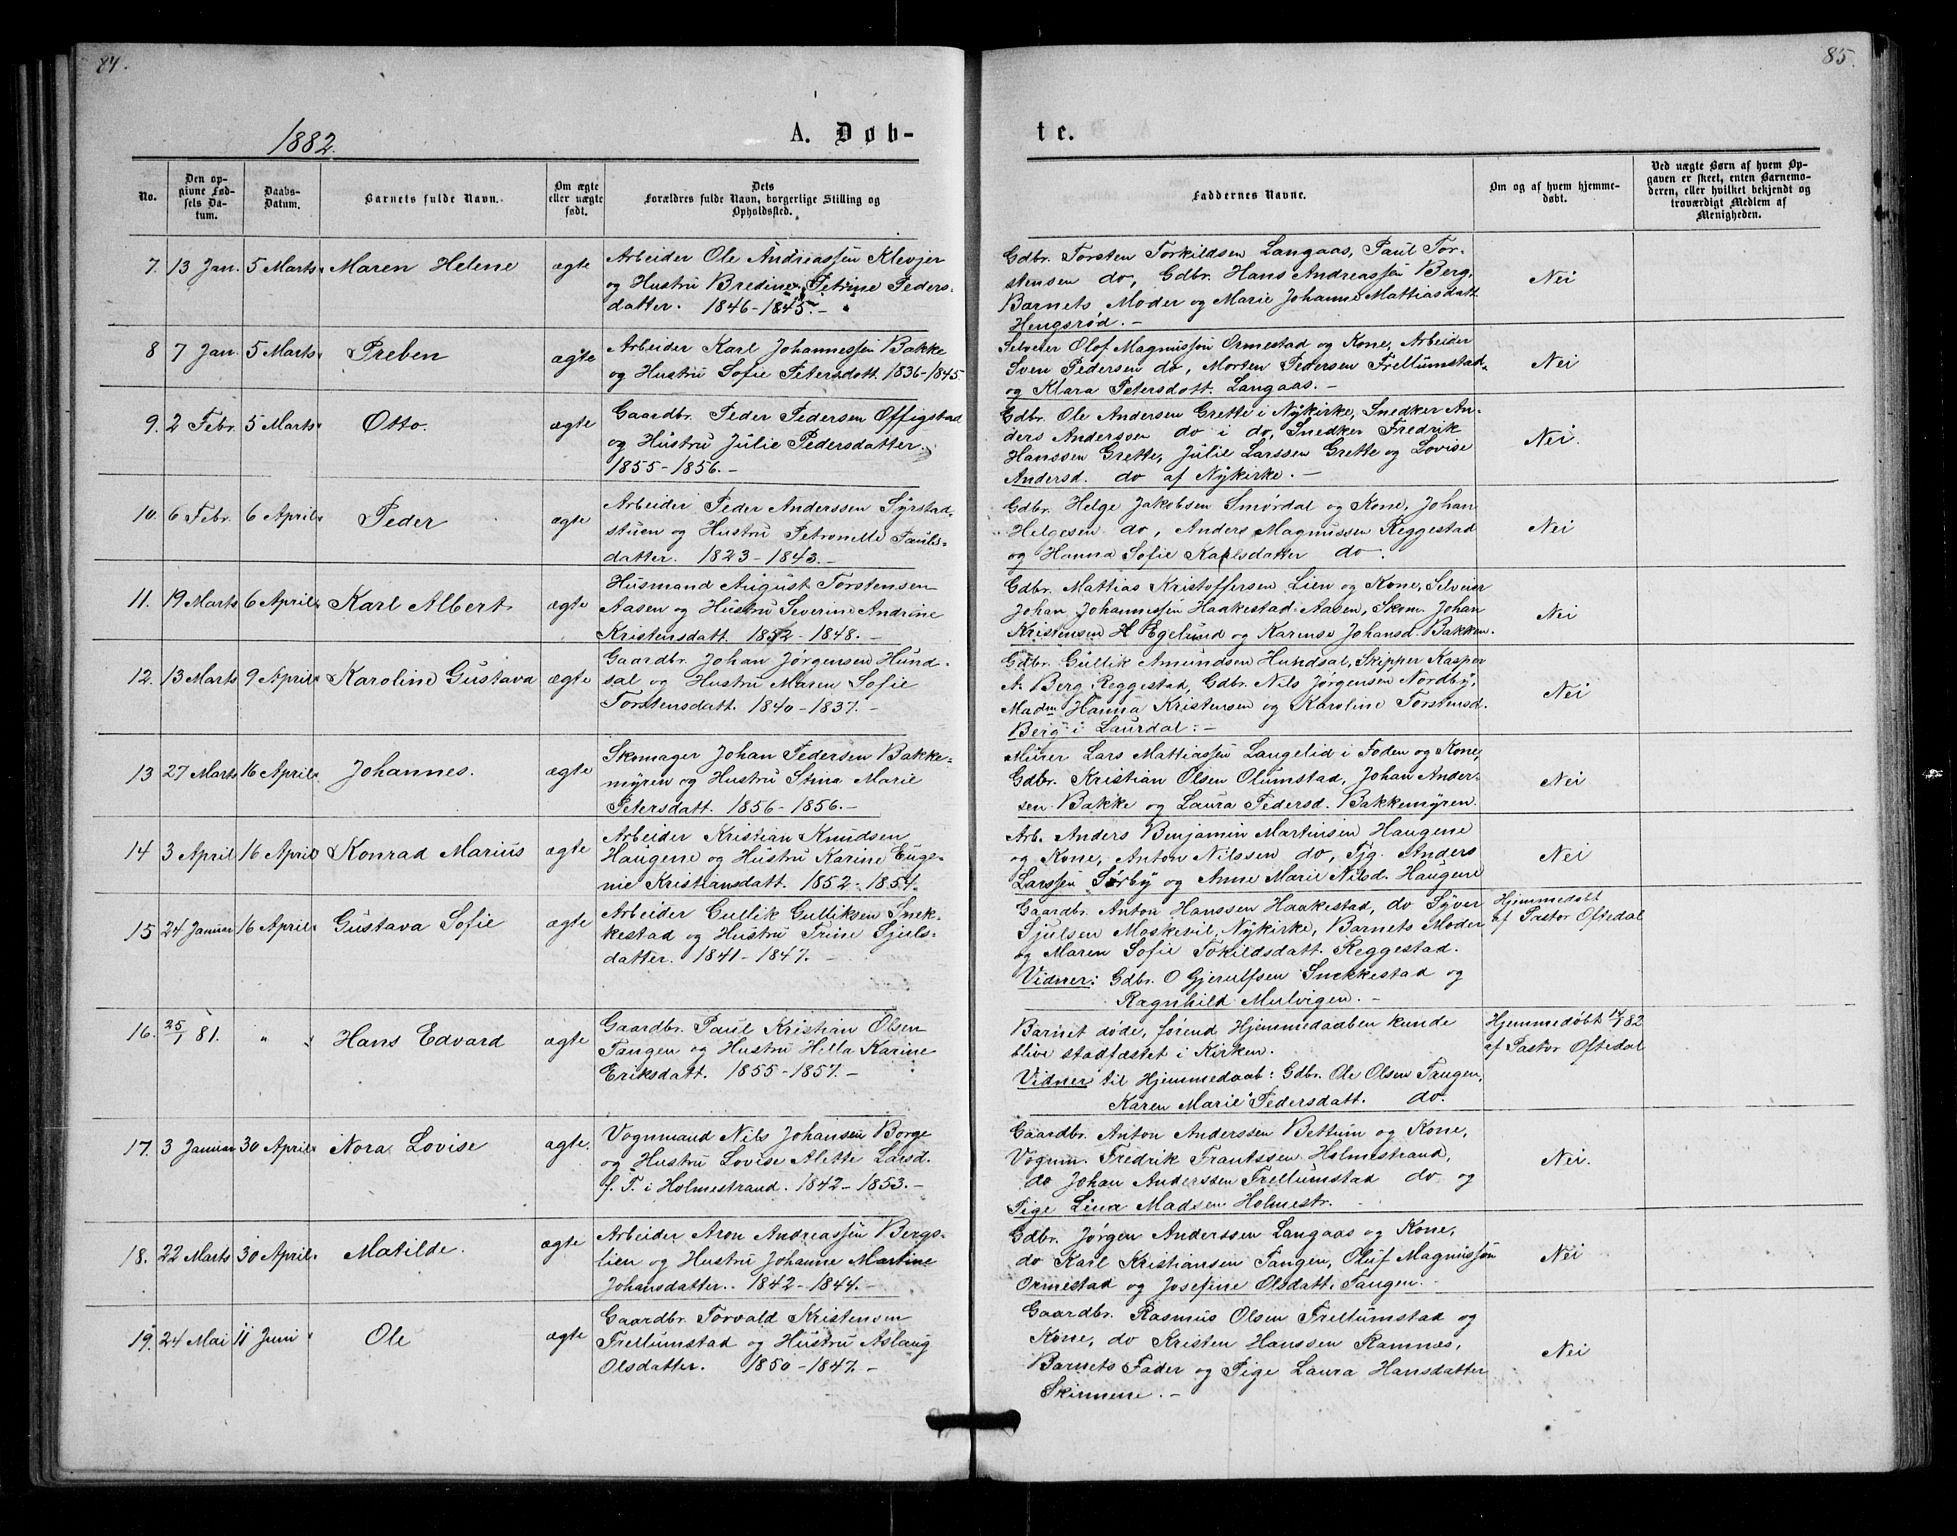 84.
85.
1882.
A. Døb-
te.
No.
Den op-
givne Fød-
sels Da-
tum.
Daabs-
Datum.
Barnets fulde Navn.
Om ægte
eller uægte
født.
Dets
Forældres fulde Navn, borgerlige Stilling og
Opholdssted.
Faddernes Navne.
Om og af hvem hjemme-
døbt.
Ved uægte Børn af hvem Op-
gaven er skeet, enten Barnemo-
deren, eller hvilket bekjendt og
troværdigt Medlem af
Menigheden.
7. 13 Jan. 5 Marts Maren Helene ægte
Arbeider Ole Andreassen Klevjer
og Hustru Bredine Petrine Peders-
datter. 1846-1845.-
Gdbr. Torsten Torkildsen Langaas, Paul Tor-
stensen do, Gdbr. Hans Andreassen Berg,
Barnets Moder og Marie Johanne Mattiasdatt.
Hengsrød.-
Nei
8 7 Jan. 5 Marts Preben ægte
Arbeider Karl Johannessen Bakke
og Hustru Sofie Petersdatt. 1836-1845
Selveier Olof Magnussen Ormestad og Kone, Arbeider
Sven Pedersen do, Morten Pedersen Frellumstad
og Klara Petersdatt. Langaas.-
Nei
9. 2 Febr. 5 Marts Otto. ægte
Gaardbr. Peder Pedersen Offigstad
og Hustru Julie Pedersdatter.
1855-1856.-
Gdbr. Ole Andersen Grette i Nykirke, Snedker An-
ders Anderssen do i do, Snedker Fredrik
Hanssen Grette, Julie Larssen Grette og Lovise
Andersd. do af Nykirke.-
Nei.
10. 6 Febr. 6 April Peder ægte
Arbeider Peder Anderssen Syrstad-
stuen og Hustru Petronelle Pauls-
datter. 1823-1843.-
Gdbr. Helge Jakobsen Smørdal og Kone, Johan
Helgesen do, Anders Magnussen Reggestad
og Hanna Sofie Karlsdatter do.
Nei
11. 19 Marts 6 April Karl Albert ægte
Husmand August Torstensen
Aasen og Hustru Severine Andrine
Kristensdatt. 1852-1848.-
Gdbr. Mattias Kristoffersen Lien og Kone, Selveier
Johan Johannessen Haakestad-Aasen, Skom. Johan
Kristensen H Egelund og Karense Johansd. Bakken.
Nei
12. 13 Marts 9 April Karoline Gustava ægte
Gaardbr. Johan Jørgensen Hund-
sal og Hustru Maren Sofie
Torstensdatt. 1840-1837.-
Gdbr. Gullik Amundsen Hundsal, Skipper Kasper
A. Berg Reggestad, Gdbr. Nils Jørgensen Nordby,
Madm Hanna Kristensen og Karoline Torstensd.
Berg i Laurdal.-
Nei
13 27 Marts 16 April Johannes. ægte
Skomager Johan Pedersen Bakke-
myren og Hustru Stina Marie
Petersdatt. 1856-1856.-
Murer Lars Mattiassen Langelid i Foden og Kone,
Gdbr. Kristian Olsen Olumstad, Johan Ander-
sen Bakke og Laura Pedersd. Bakkemyren.
Nei
14 3 April 16 April Konrad Marius ægte
Arbeider Kristian Knudsen
Haugene og Hustru Karine Euge-
nie Kristiansdatt. 1852-1854.
Arb. Anders Benjamin Martinsen Haugene
og Kone, Anton Nilssen do, Tjg. Anders
Larssen Sørby og Anne Marie Nilsd. Haugene
Nei
15 24 Januar 16 April Gustava Sofie ægte
Arbeider Gullik Gulliksen Snek-
kestad og Hustru Trine Sjuls-
datter. 1841-1847.-
Gaardbr. Anton Hanssen Haakestad, do Syver
Sjulsen Moskevil, Nykirke, Barnets Moder
og Maren Sofie Tokildsdatt Reggestad.
Vidner: Gdbr. O Gjerulfsen Snekkestad og
Ragnhild Mulvigen.-
Hjemmedøbt
af Pastor Oftedal
16. 25/1 81. " " Hans Edvard ægte
Gaardbr. Paul Kristian Olsen
Tangen og Hustru Hella Karine
Eriksdatt. 1855-1857.-
Barnet døde, førend Hjemmedaaben kunde
blive stadfæstet i Kirken.
Vidner til Hjemmedaab: Gdbr. Ole Olsen Tangen,
Karen Marie Pedersdatt. do.
Hjemmedøbt 82
af Pastor Oftedal
17. 3 Januar 30 April Nora Lovise ægte.
Vognmand Nils Johansen Borge
og Hustru Lovise Alette Larsd.
f. T. i Holmestrand. 1842-1853.-
Gaardbr. Anton Anderssen Bettum og Kone,
Vognm. Fredrik Frantssen Holmestrand,
do Johan Anderssen Frellumstad do og
Pige Lina Madsen Holmestr.
Nei.
18. 22 Marts 30 April Matilde. ægte
Arbeider Aron Andreassen Bergs-
lien og Hustru Johanne Martine
Johansdatter. 1842-1844.-
Gdbr. Jørgen Anderssen Langaas og Kone,
do Karl Kristiansen Tangen, Oluf Magnussen
Ormestad og Josefine Olsdatt. Tangen.
Nei
19. 24 Mai 11 Juni Ole ægte
Gaardbr. Torvald Kristensen
Frellumstad og Hustru Aslaug
Olsdatter. 1850-1847.-
Gaardbr. Rasmus Olsen Frellumstad og
Kone, do Kristen Hanssen Ramnæs,
Barnets Fader og Pige Laura Hansdatter
Skinnene.-
Nei